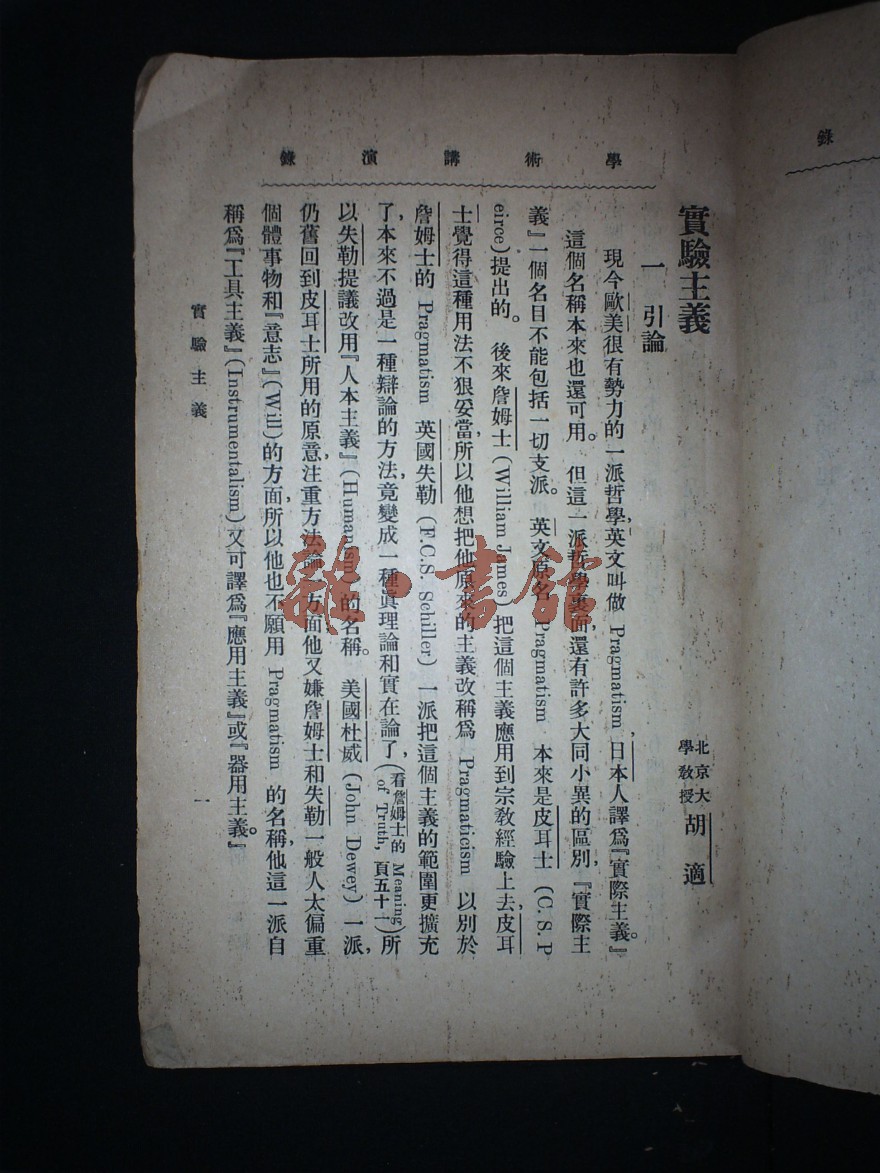 學術講演錄
實驗主義
北京大學教授 胡適
一 引論
現今歐美很有勢力的一派哲學,英文叫做 Pragmatism,日本人譯爲『實際主義』。
這個名稱本來也還可用。但這一派哲學裏面,還有許多大同小異的區別,『實際主
義』一個名目不能包括一切支派。英文原名 Pragmatism 本來是皮耳士 (C.S.P
eirce) 提出的。後來詹姆士 (William James 把這個主義應用到宗教經驗上去,皮耳
士覺得這種用法不狠妥當,所以他想把他原來的主義改稱爲 Pragmaticism 以別於
詹姆士的 Pragmatism 英國失勒 (F.C.S. Schiller) 一派把這個主義的範圍更擴充
了,本來不過是一種辯論的方法,竟變成一種眞理論和實在論了,(看詹姆士的 Meaning of Truth, 頁五十一)所
以失勒提議改用『人本主義』(Humanism) 的名稱。美國杜威 (John Dewey) 一派,
仍舊回到皮耳士所用的原意,注重方法論一方面,他又嫌詹姆士和失勒一般人太偏重
個體事物和『意志』(Will) 的方面,所以他也不願用 Pragmatism 的名稱,他這一派自
稱爲『工具主義』(Instrumentalism) 又可譯爲『應用主義』或『器用主義』。
實驗主義
一
錄
雜·書館